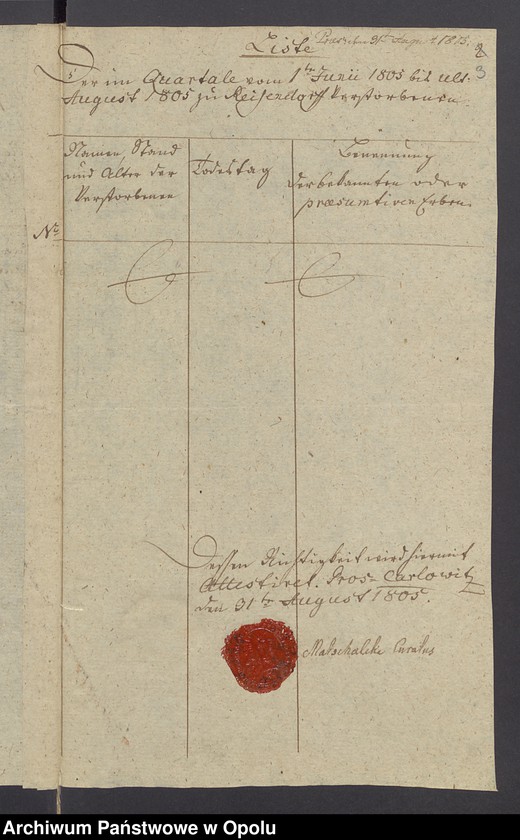 Liste
Der im Quartale vom 1ten Junii 1805 bis ult.
August 1805 zu Reisendorff Verstorbenen.
Namen, Stand
und Alter der
Verstorbenen
Todestag
Benennung
der bekannten oder
præsumtiven Erben.
Nr.
Dessen Richtigkeit wird hiermit
Attestiret. Gros- Carlowitz
den 31ten August 1805.
Matschalcke Curatus
3
Archiwum Państwowe w Opolu